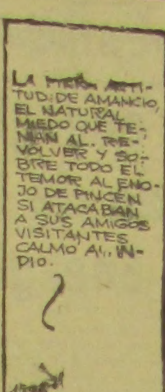 LA FIERA ACTI-
TUD DE AMANCIO,
EL NATURAL
MIEDO QUE TE-
NIAN AL RE-
VOLVER Y SO-
BRE TODO EL
TEMOR AL ENO-
JO DE PINCEN
SI ATACABAN
A SUS AMIGOS
VISITANTES
CALMO AL IN-
DIO.